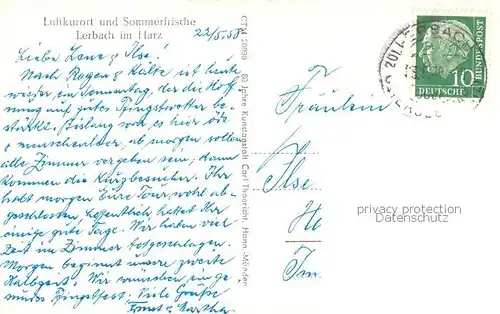 Luftkurort und Sommerfrische
Lerbach im Harz
22/5.58
Liebe Lene & Ilse!
Nach Regen & Kälte ist heute
wieder ein Sonnentag, der die Hoff
nung auf gutes Pfingstwetter be
stärkt. Bislang war es hier öde
& menschenleer, ab morgen sollen
alle Zimmer vergeben sein, dann
kommen die Kurzbesucher. Ihr
habt morgen Eure Tour wohl ab
geschlossen, hoffentlich hattet Ihr
einige gute Tage. Wir haben viel
Zeit im Zimmer totgeschlagen.
Morgen beginnt unsere zweite
Halbzeit. Wir wünschen ein ge
sundes Pfingstfest. Viele Grüße
Ernst & Martha
CTM 80 Jahre Kunstanstalt Carl Thoericht, Hann.-Münden
Fräulein
Ilse
Im
10
DEUTSCHE
BUNDESPOST
privacy protection